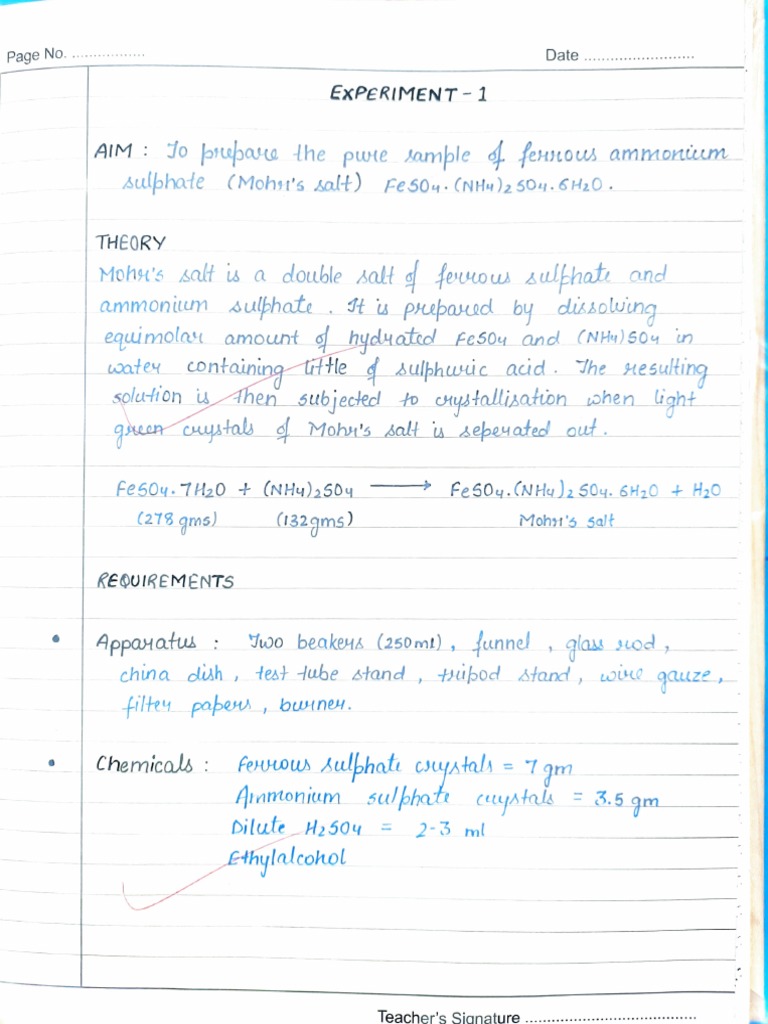 Page No. ................. Date .........................
EXPERIMENT - 1
AIM : To prepare the pure sample of ferrous ammonium
sulphate (Mohr's salt) FeSO4.(NH4)2SO4.6H2O.
THEORY
Mohr's salt is a double salt of ferrous sulphate and
ammonium sulphate. It is prepared by dissolving
equimolar amount of hydrated FeSO4 and (NH4)SO4 in
water containing little of sulphuric acid. The resulting
solution is then subjected to crystallisation when light
green crystals of Mohr's salt is seperated out.
FeSO4.7H2O + (NH4)2SO4 ⟶ FeSO4.(NH4)2SO4.6H2O + H2O
(278 gms) (132gms) Mohr's salt
REQUIREMENTS
• Apparatus : Two beakers (250ml), funnel, glass rod,
china dish, test tube stand, tripod stand, wire gauze,
filter papers, burner.
• Chemicals : Ferrous sulphate crystals = 7 gm
Ammonium sulphate crystals = 3.5 gm
Dilute H2SO4 = 2-3 ml
Ethylalcohol
Teacher's Signature .......................................